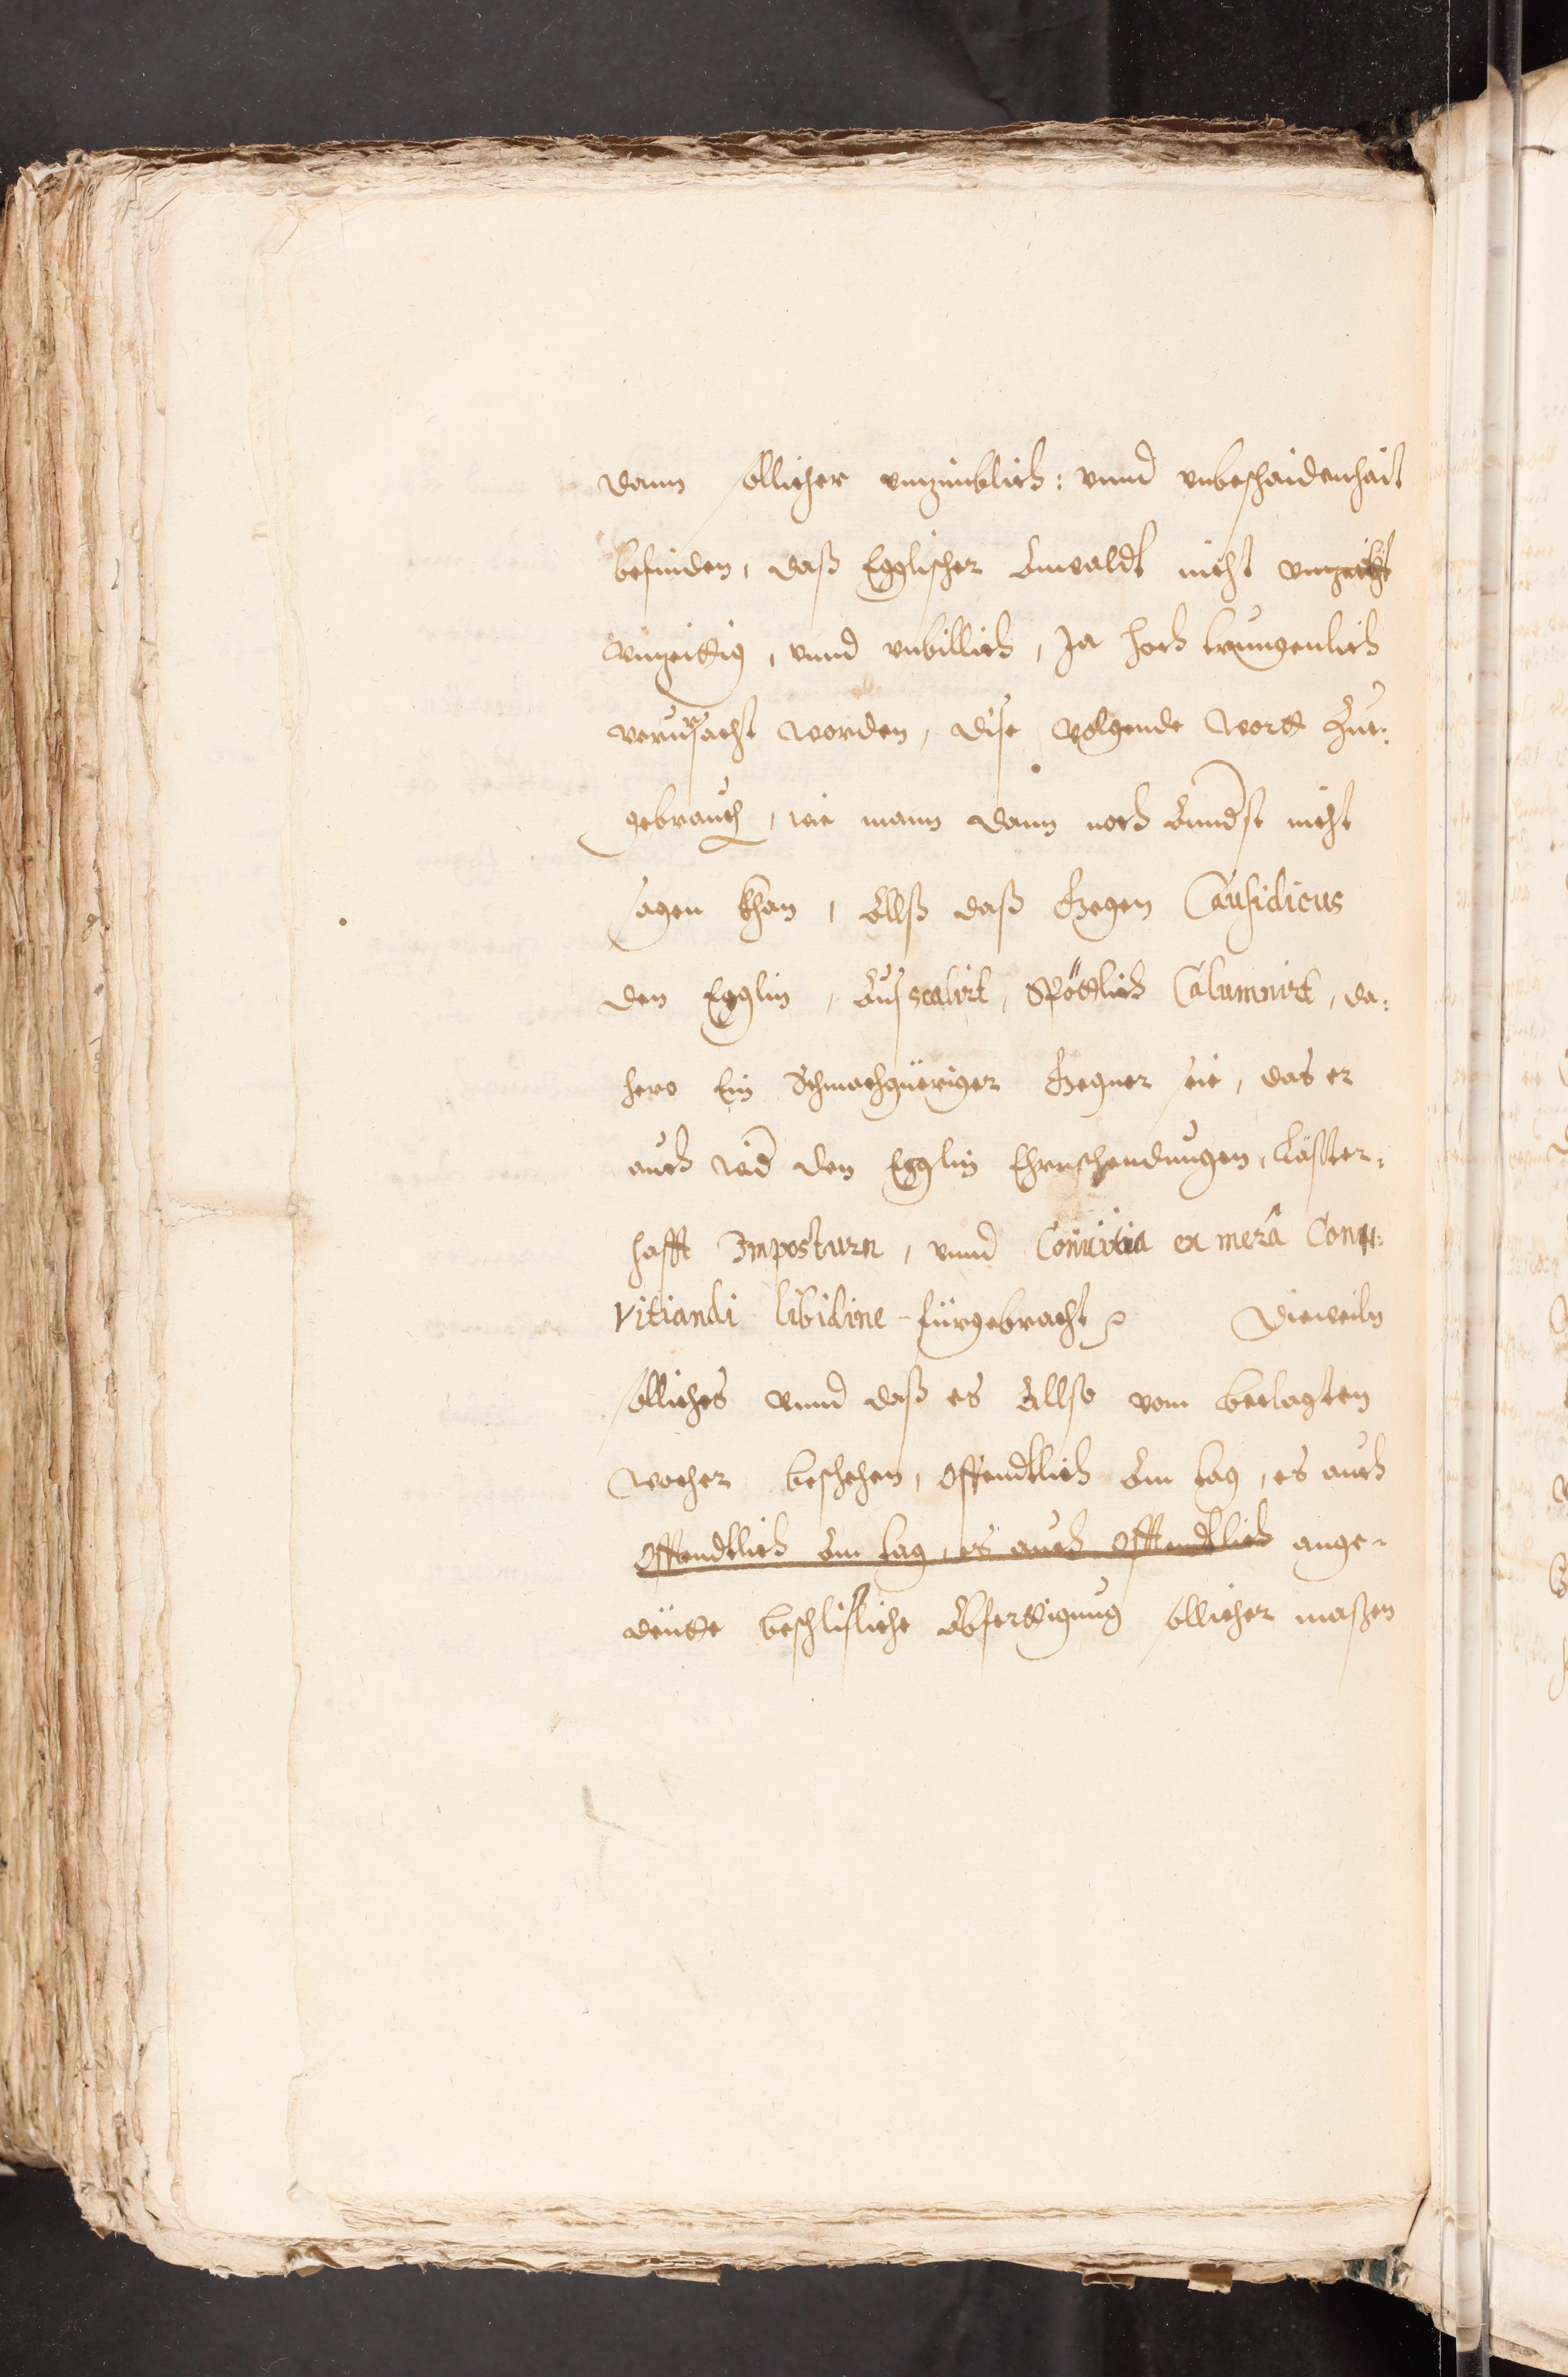 dann sollicher vnzimblich: vnnd vnbeschaidenhait
befinden, daß Egglischer Anwaldt nicht
vnzeittig, vnnd vnbillich, Ja hoch trungenlich
verursacht worden, dise volgende wortt Zue:
gebrauch, wie mann dann noch Annderst nicht
sagen khan, Allß daß Gegen Causidicus
den Egglin, Aufscalirt, Spöttlich Calumnirt, da:
hero Ein Schmachgüeriger Gegner seie, das er
auch wid den Egglin Ehrnschendungen, Läster:
hafft Imposturn, vnnd Conuitia ex merâ Conu:
vitiandi libidine fürgebracht Dieweiln
solliches vnnd daß es Allso vom beclagten
Wocher beschehen, offendtlich Am tag, es auch
offendtlich Am tag, es auch offendtlich ange-
deutte beschlißliche Abferttigung sollicher maßen